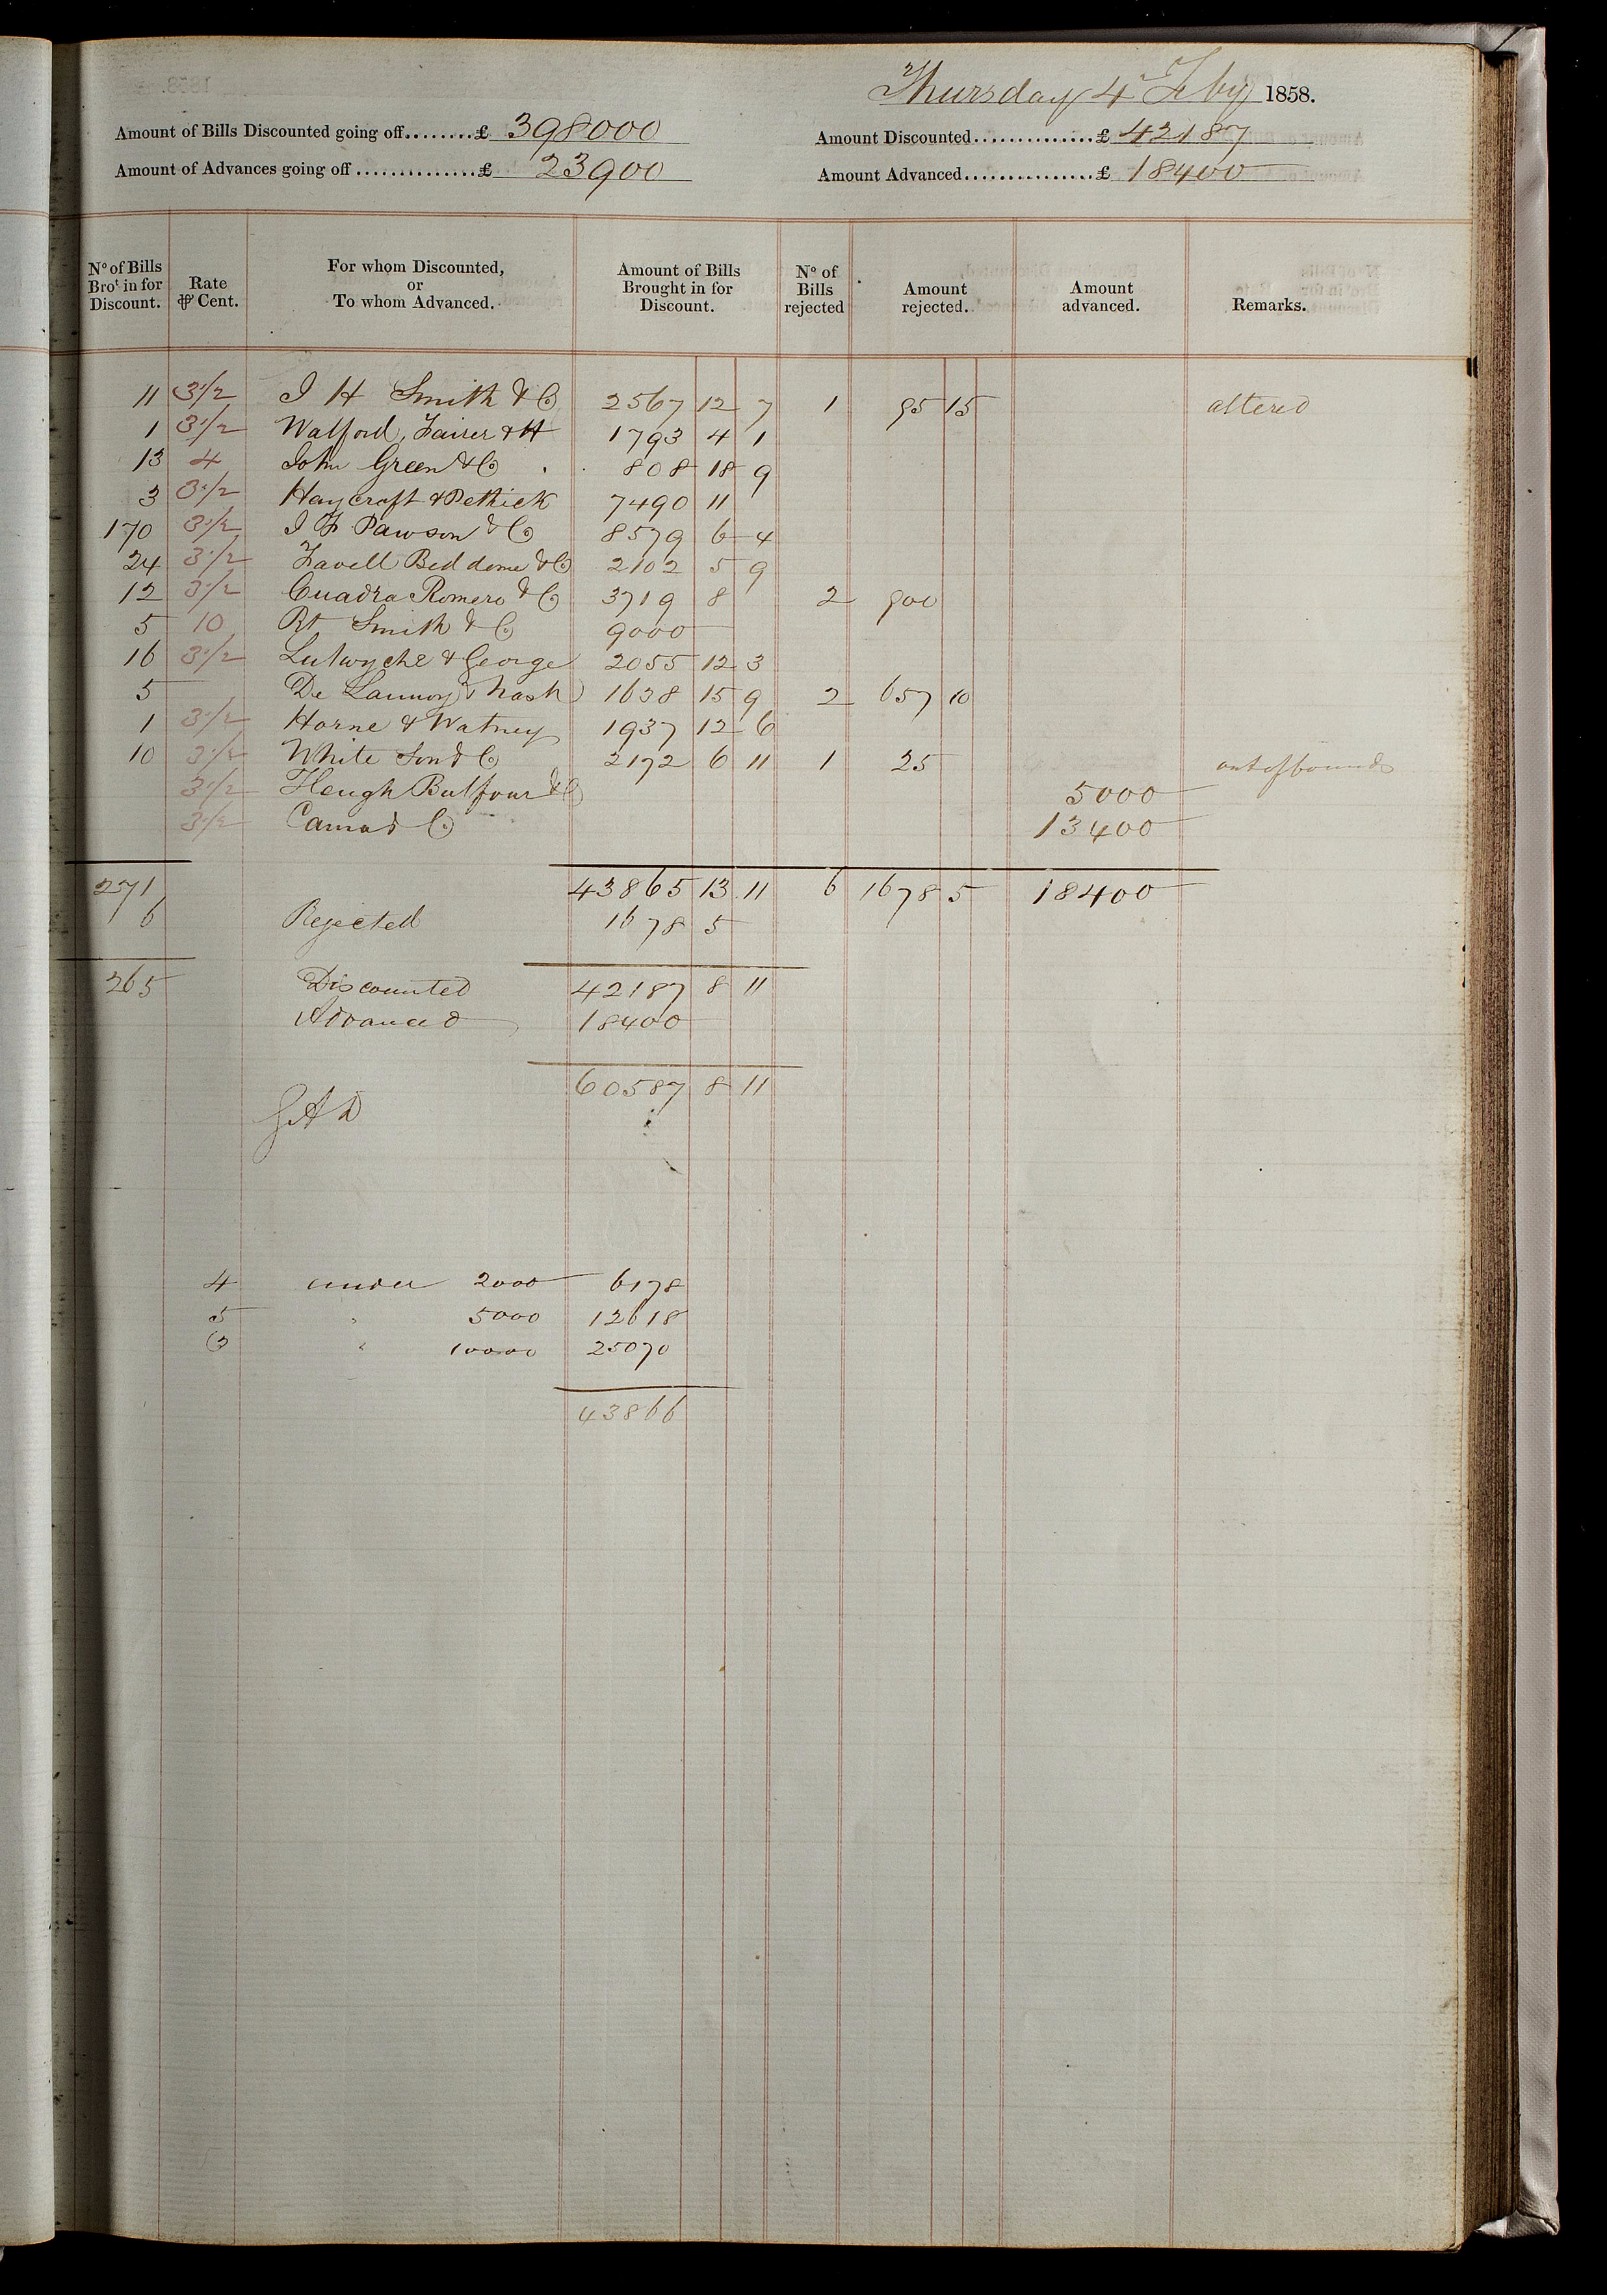 Thursday 4 Feby 1858.
Amount of Bills Discounted going off........£ 398000
Amount Discounted..............£ 42187
Amount of Advances going off..............£ 23900
Amount Advanced...............£ 18400
No of Bills Brot in for Discount. Rate ⅌ Cent. For whom Discounted, or To whom Advanced. Amount of Bills Brought in for Discount. No of Bills rejected Amount rejected. Amount advanced. Remarks.
11 3 1/2 I H Smith & Co 2567 12 7 1 95 15 altered
1 3 1/2 Walford, Fairer & H 1793 4 1
13 4 John Green & Co 808 18 9
3 3 1/2 Haycroft & Pethick 7490 11
170 3 1/2 I F Pawson & Co 8579 6 4
24 3 1/2 Favell Beddome & Co 2102 5 9
12 3 1/2 Cuadra Romero & Co 3719 8 2 900
5 10 Rt Smith & Co 9000
16 3 1/2 Lutwyche & George 2055 12 3
5 De Lannoy & Nash 1638 15 9 2 657 10
1 3 1/2 Horne & Watney 1937 12 6
10 3 1/2 White Son & Co 2172 6 11 1 25 out of bounds
3 1/2 Heugh Balfour & Co 5000
3 1/2 & Co 13400
271 43865 13 11 6 1678 5 18400
6 Rejected 1678 5
265 Discounted 42187 8 11
Advanced 18400
60587 8 11
4 under 2000 6178
5 " 5000 12618
3 " 10000 25070
43866